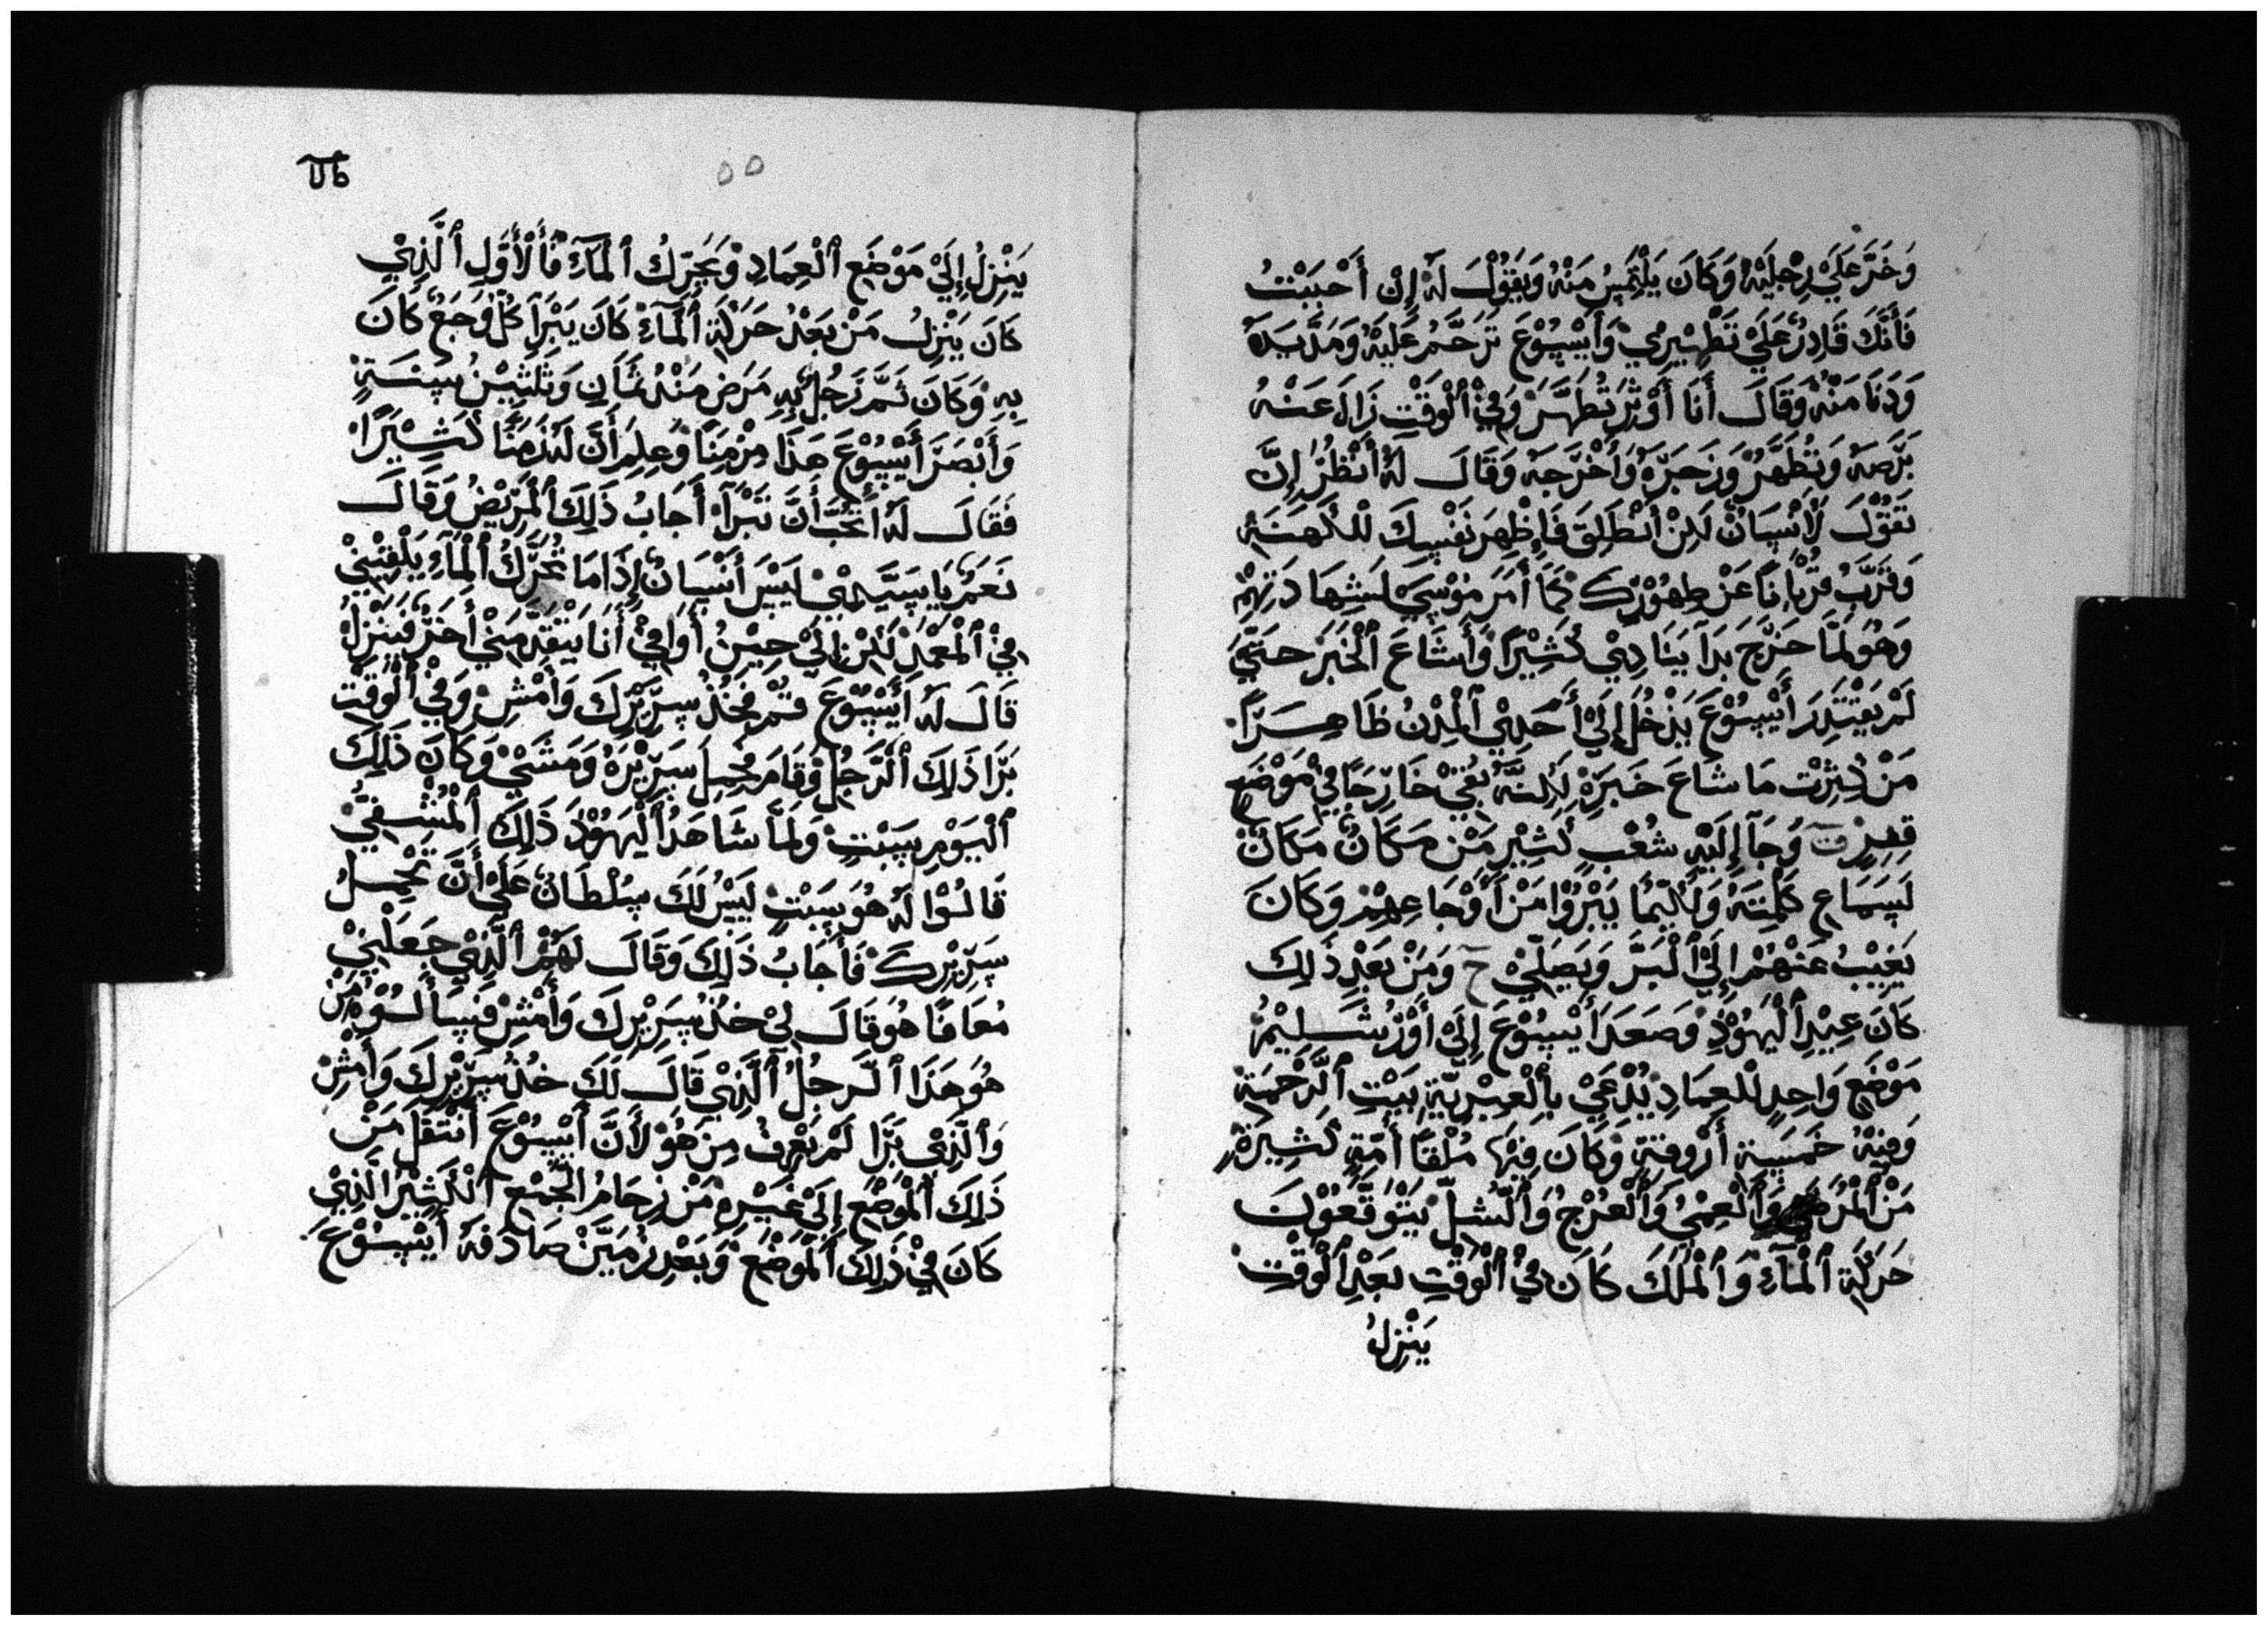 وَخَرَّ عَلَيْ رِجْلَيْهُ وَكَانَ يَلْتَمِسُ مَنْهُ وَيَقُوْلَ لَهُ إِنْ أَحْبَبْتُ
فَأَنَّكَ قَادِرُ عَلَيْ تَطْهِيْرِيْ وَأَيْسُوْعَ تَرَحَّمُ عَلَيْهُ وَمَدَّ يَدَهُ
وَدَنَا مَنْهُ وَقَالَ أَنَا أَوْثِرُ تُطَهَّرَ وَفِيْ ٱلْوَقْتْ زَالَ عَنْهُ
بَرَصَهُ وَتُطَهَّرَ وَزَجَرَهُ وَأَخْرَجَهُ وَقَالَ لَهُ أُنْظُرُ إِنَّ
تَقُوْلَ لَأْنْسَانْ لَكِنْ أَنْطَلِقَ فَاِظْهِرَ نَفْسِكَ لْلكَهَنَةُ
وَقَرَّبُ قُرْبَانًا عَنْ طِهُوْرِكَ كَمَا أَمَرَ مُوْسِيْ لَشِهَادَتِهِمْ
وَهُوَ لَمَّا خَرَجَ بَدَآ يَنَادِيْ كَثِيْرًا وَأَشَاعَ ٱلْخَبَرَ حَتَّيْ
لَمْ يَقْتَدِرَ أَيْسُوْعَ يَدْخُلَ إِلَيْ أَحَدِيْ ٱلْمِدْنُ ظَاهِرًا
مَنْ كُثِرْتْ مَا شَاعَ خَبَرَهُ لَكِنَّهُ بُقِيْ خَارِجًا فِيْ مَوْضَعٍ
قِفِرْ وَجَآ إِلَيْهِ شُعْبِ كَثِيْرِ مَنْ مَكَانْ مَكَانْ
لَسَمَاعِ كَلْمِتَهُ وَلَكَيْمَا يَبْرُوْا مَنْ أَوْجَاعِهِمْ وَكَانَ
يَغِيْبُ عَنْهُمْ إِلَيْ ٱلْبَرَ وَيَصَلِّيْ ح وَمَنْ بَعْدِ ذَلِكَ
كَانَ عِيْدِ ٱلْيَهُوْدِ وَصَعَدَ أَيْسُوْعَ إِلَيْ أَوْرُشَلِيْمُ
مَوْضَعٍ وَاحِدٍ للْعِمَادِ يُدْعَيْ بِٱلْعِبْرِيَّةِ بَيْتِ ٱلرَّحْمَةِ
وَفِيْهُ خَمْسَةِ أَرْوِقَةِ وَكَانَ فِيْهَا مُلْقَا أُمَّةٍ كَثِيْرَةٍ
مَنْ ٱلْمُرَضِيْ وَٱلْعِمْيُ وَٱلْعُرْجُ وَٱلْشُلِّ يَتْوَقَّعُوْنَ
حَرَكَةِ ٱلْمَآءِ وَٱلْمَلَكَ كَانَ فِيْ ٱلْوَقْتِ بَعْدِ ٱلْوَقْتِ
يَنْزِلُ
٥٥
يَنْزِلُ إِلَيْ مَوْضَعِ ٱلْعِمَادِ وَيَحَرِّكُ ٱلْمَآءَ فَأَلْأَوَّلِ ٱلَّذِيْ
كَانَ يَنْزِلُ مَنْ بَعْدُ حَرَكَةِ ٱلْمَآءْ كَانَ يَبْرَآ كُلُّ وَجَعٌ كَانَ
بِهِ وَكَانَ ثَمَّ رَجُلُ بِهِ مَرَضِ مَنْدُ ثَمَانِ وَثَلَثِيْنَ سِنَةٍ
وَأَبْصَرَ أَيْسُوْعَ هَذَا مِزْمِنًا وَعِلِمَ أَنَّ لَهُ زَمَنًا كَثِيْرًا
فَقَالَ لَهُ أَتُحِبُّ أَنَّ تَبْرَآ أَجَابُ ذَلِكَ ٱلْمَرِيْضُ وَقَالَ
نَعَمْ يَا سَيَّدِيْ لَيْسَ أَنْسَانُ إِذَا مَا تُحَرَّكُ ٱلْمَآءِ يَلْقِيْنِيْ
فِيْ ٱلْمَعْمَدِ لَكْنْ إِلَيْ حِيْنُ أَوَافِيْ أَنَا يَتْقَدَّمَنِيْ أَخَرُ فَيَنْزِلُ
قَالَ لَهُ أَيْسُوْعَ قُمْ فَخُذْ سِرِيْرِكَ وَأَمْشِ وَفِيْ ٱلْوَقْتْ
بَرَا ذَلِكَ ٱلْرَجُلُ وَقَامَ فَحِمِلَ سَرِيْرَهُ وَمَشَيْ وَكَانَ ذَلِكَ
ٱلْيَوْمِ سَبْتِ وَلَمَّا شَاهَدُ ٱلْيَهُوْدَ ذَلِكَ ٱلْمُشْفِيُ
قَالُوْا لَهُ هُوَ سَبْتِ لَيْسُ لَكَ سُلْطَانُ عَلَيْ أَنَّ تَحْمِلُ
سَرِيْرِكَ فَأَجَابُ ذَلِكَ وَقَالَ لَهُمْ ٱلَّذِيْ جَعَلَنِيْ
مُعَافَا هُوَ قَالَ لِيْ خُذْ سِرِيْرِكَ وَأَمْشِ فَسَأَلُوْهُ مَنْ
هُوَ هَذَا ٱلْرَجُلُ ٱلَّذِيْ قَالَ لَكَ خُذُ سِرِيْرِكَ وَأَمْشِ
وَٱلَّذِيْ بَرَّا لَمْ يَعْرِفُ مِنْ هُوَ لأَنَّ أَيْسُوْعَ أَنْتَقَلَ مَنْ
ذَلِكَ ٱلْمَوْضَعِ إِلَيْ غَيْرِهِ مَنْ زِحَامُ ٱلْجَمْعِ ٱلْكَثِيْرُ ٱلَّذِيْ
كَانَ فِيْ ذَلِكَ ٱلْمَوْضَعِ وَبَعْدِ زَمَيْنْ صَادَفَهُ أَيْسُوْعَ